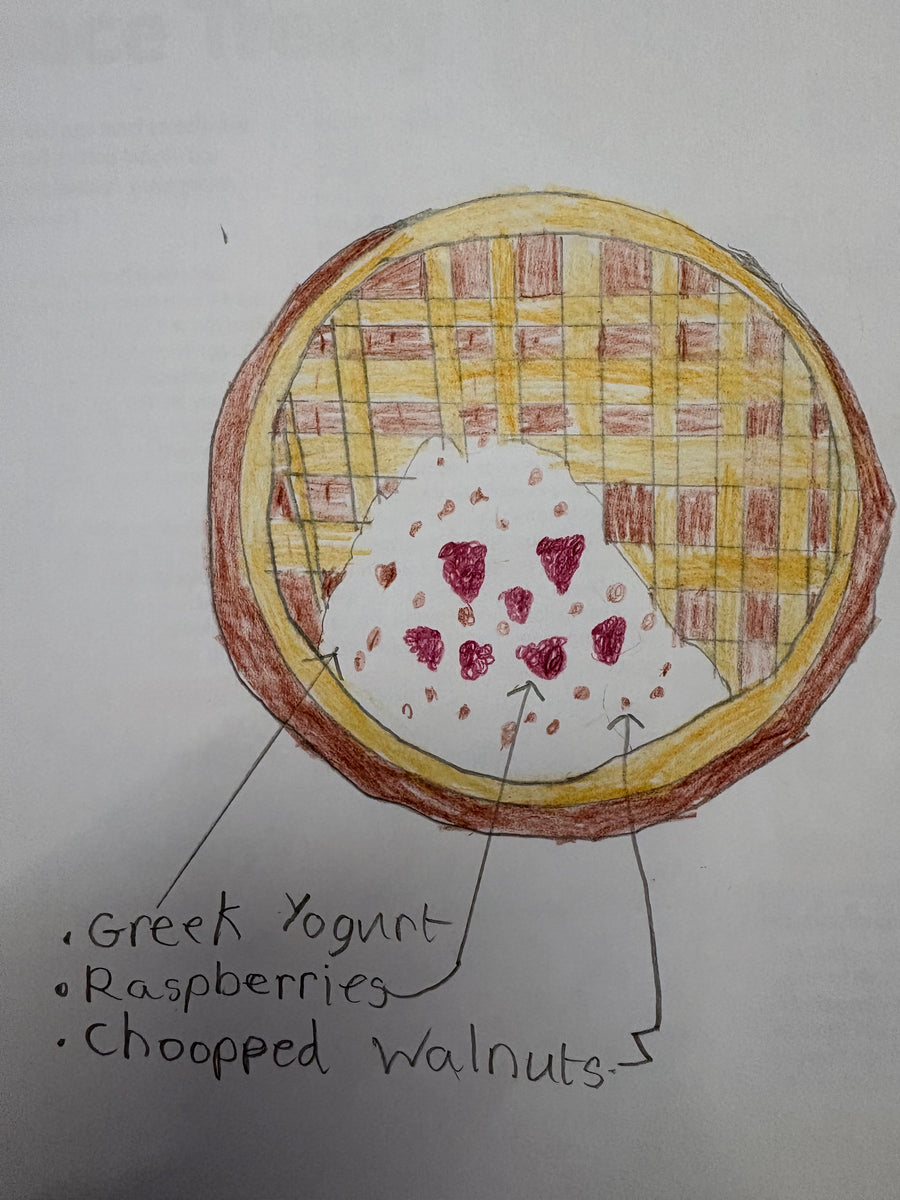 . Greek Yogurt
• Raspberries
. Choopped Walnuts.